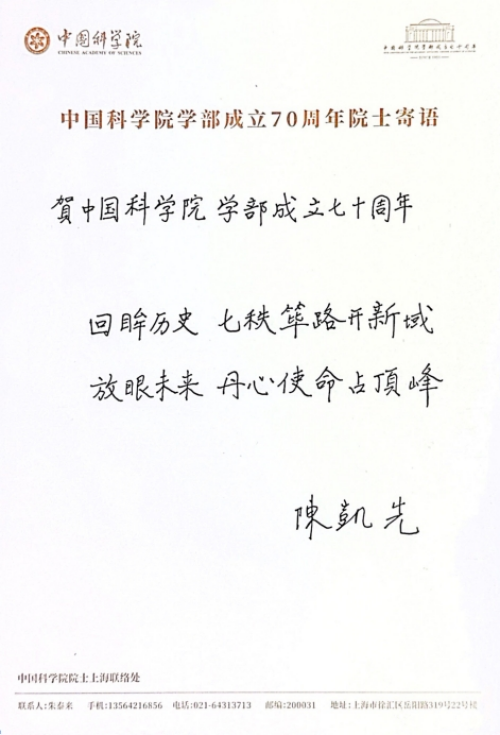 中国科学院
CHINESE ACADEMY OF SCIENCES
中国科学院学部成立七十周年
中国科学院学部成立70周年院士寄语
賀中国科学院 学部成立七十周年
回眸历史 七秩筚路开新域
放眼未来 丹心使命占頂峰
陳凱先
中国科学院院士上海联络处
联系人:朱泰来 手机:13564216856 电话:021-64313713 邮编:200031 地址:上海市徐汇区岳阳路319号22号楼